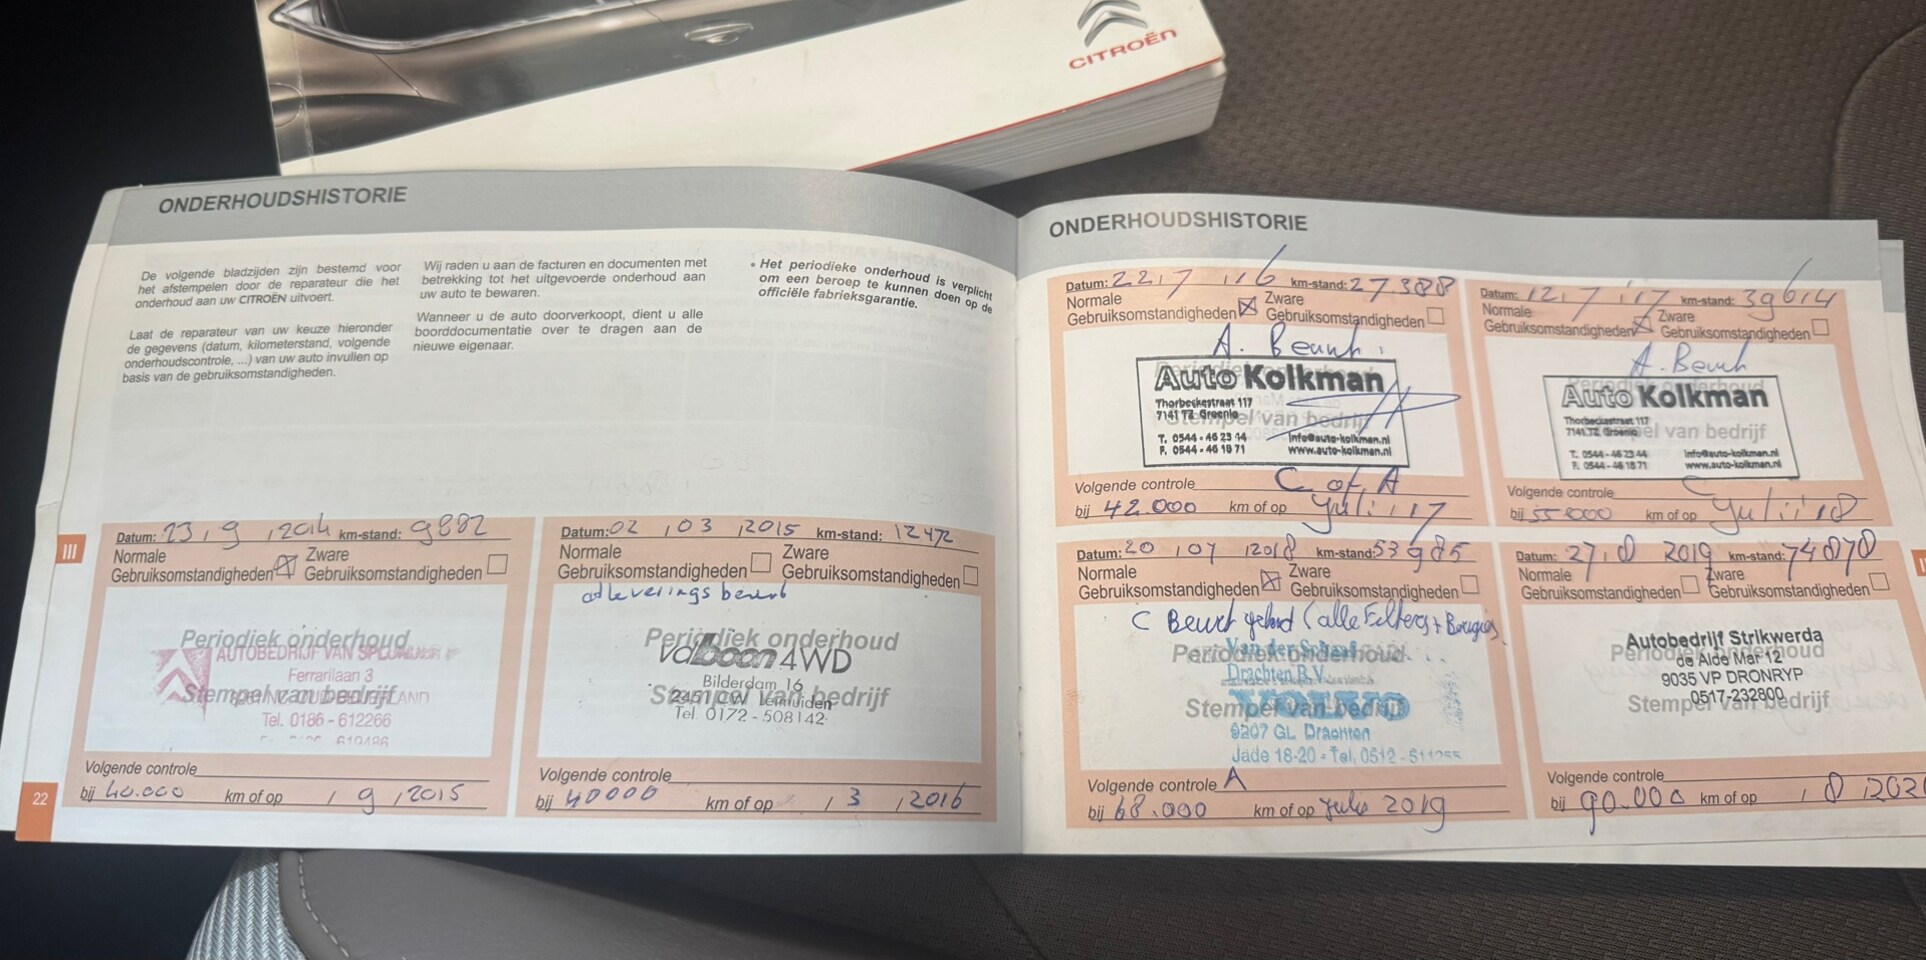 CITROËN
ONDERHOUDSHISTORIE
De volgende bladzijden zijn bestemd voor
het afstempelen door de reparateur die het
onderhoud aan uw CITROËN uitvoert.
Laat de reparateur van uw keuze hieronder
de gegevens (datum, kilometerstand, volgende
onderhoudscontrole, ...) van uw auto invullen op
basis van de gebruiksomstandigheden.
Wij raden u aan de facturen en documenten met
betrekking tot het uitgevoerde onderhoud aan
uw auto te bewaren.
Wanneer u de auto doorverkoopt, dient u alle
boorddocumentatie over te dragen aan de
nieuwe eigenaar.
• Het periodieke onderhoud is verplicht
om een beroep te kunnen doen op de
officiële fabrieksgarantie.
III
Datum: 23, 9, 2014 km-stand: 9882
Normale Zware
Gebruiksomstandigheden Gebruiksomstandigheden
Periodiek onderhoud
AUTOBEDRIJF VAN
Ferrarilaan 3
Stempel van bedrijf
Tel. 0186 - 612266
Volgende controle
bij 40.000 km of op , 9, 2015
Datum: 02, 03, 2015 km-stand: 12472
Normale Zware
Gebruiksomstandigheden Gebruiksomstandigheden
afleverings beurt
Periodiek onderhoud
4WD
Bilderdam 16
Stempel van bedrijf
Tel. 0172 - 508142
Volgende controle
bij 40000 km of op , 3, 2016
22
ONDERHOUDSHISTORIE
Datum: 22, 7, 16 km-stand: 27388
Normale Zware
Gebruiksomstandigheden Gebruiksomstandigheden
A. Beurt
Periodiek onderhoud
Auto Kolkman
Thorbeckestraat 117
7141 TZ Groenlo
Stempel van bedrijf
T. 0544 - 46 23 44 info@auto-kolkman.nl
F. 0544 - 46 18 71 www.auto-kolkman.nl
Volgende controle C of A
bij 42.000 km of op Juli '17
Datum: 12, 7, 17 km-stand: 39614
Normale Zware
Gebruiksomstandigheden Gebruiksomstandigheden
A. Beurt
Periodiek onderhoud
Auto Kolkman
Thorbeckestraat 117
7141 TZ Groenlo
Stempel van bedrijf
T. 0544 - 46 23 44 info@auto-kolkman.nl
F. 0544 - 46 18 71 www.auto-kolkman.nl
Volgende controle C
bij 55000 km of op Juli '18
Datum: 20, 07, 2018 km-stand: 53985
Normale Zware
Gebruiksomstandigheden Gebruiksomstandigheden
C Beurt gehad (alle Filters + Bougies)
Periodiek onderhoud
Van der
Drachten B.V.
Stempel van bedrijf
VOLVO
9207 GL Drachten
Jade 18-20 - Tel. 0512 -
Volgende controle A
bij 68.000 km of op Julie 2019
Datum: 27, 8 2019 km-stand: 74878
Normale Zware
Gebruiksomstandigheden Gebruiksomstandigheden
Autobedrijf Strikwerda
Periodiek onderhoud
de Alde Mar 12
9035 VP DRONRYP
0517-232800
Stempel van bedrijf
Volgende controle
bij 90.000 km of op , 8, 202